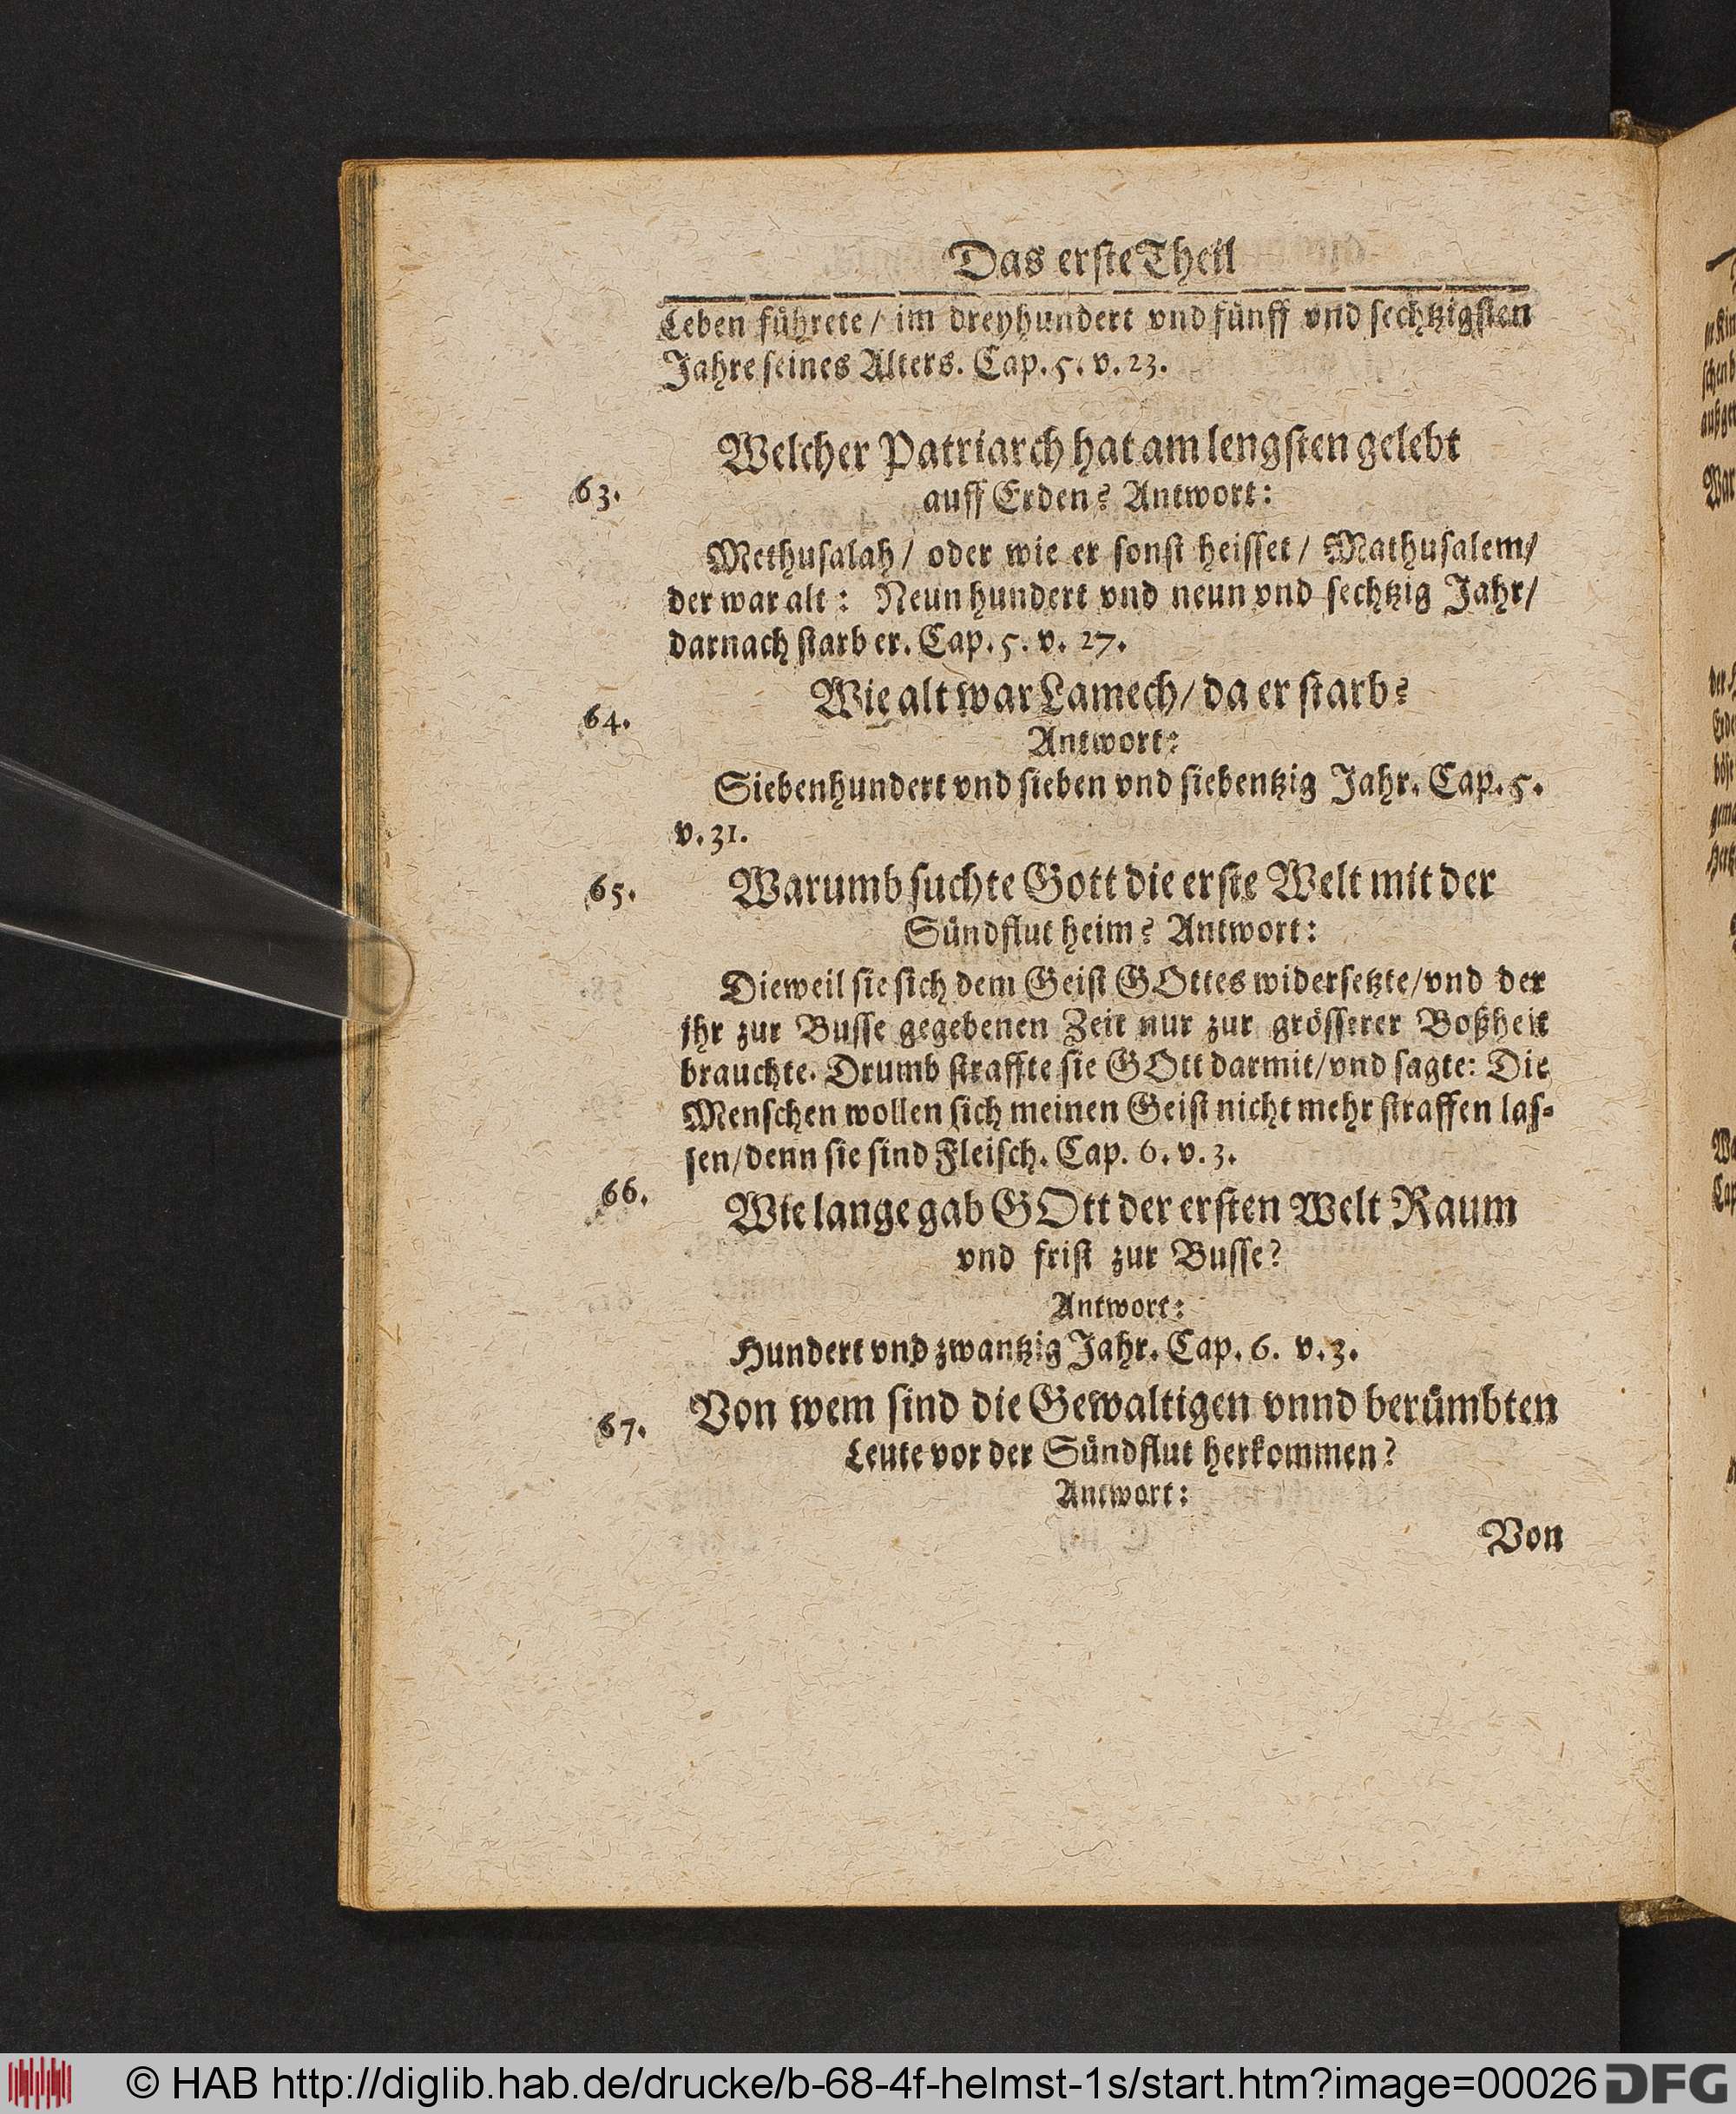 Das erste Theil
Leben führete/ im dreyhundert vnd fünff vnd sechtzigsten
Jahre seines Alters. Cap. 5. v. 23.
Welcher Patriarch hat am lengsten gelebt
63. auff Erden? Antwort:
Methusalah/ oder wie er sonst heisset/ Mathusalem/
der war alt: Neun hundert vnd neun vnd sechtzig Jahr/
darnach starb er. Cap. 5. v. 27.
Wie alt war Lamech/ da er starb?
64.
Antwort:
Siebenhundert vnd sieben vnd siebentzig Jahr. Cap. 5.
v. 31.
65. Warumb suchte Gott die erste Welt mit der
Sündflut heim? Antwort:
Dieweil sie sich dem Geist GOttes widersetzte/ vnd der
jhr zur Busse gegebenen Zeit nur zur grösserer Boßheit
brauchte. Drumb straffte sie GOtt darmit/ vnd sagte: Die
Menschen wollen sich meinen Geist nicht mehr straffen las-
sen/ denn sie sind Fleisch. Cap. 6. v. 3.
66. Wie lange gab GOtt der ersten Welt Raum
vnd frist zur Busse?
Antwort:
Hundert vnd zwantzig Jahr. Cap. 6. v. 3.
67. Von wem sind die Gewaltigen vnnd berümbten
Leute vor der Sündflut herkommen?
Antwort:
Von
© HAB http://diglib.hab.de/drucke/b-68-4f-helmst-1s/start.htm?image=00026 DFG